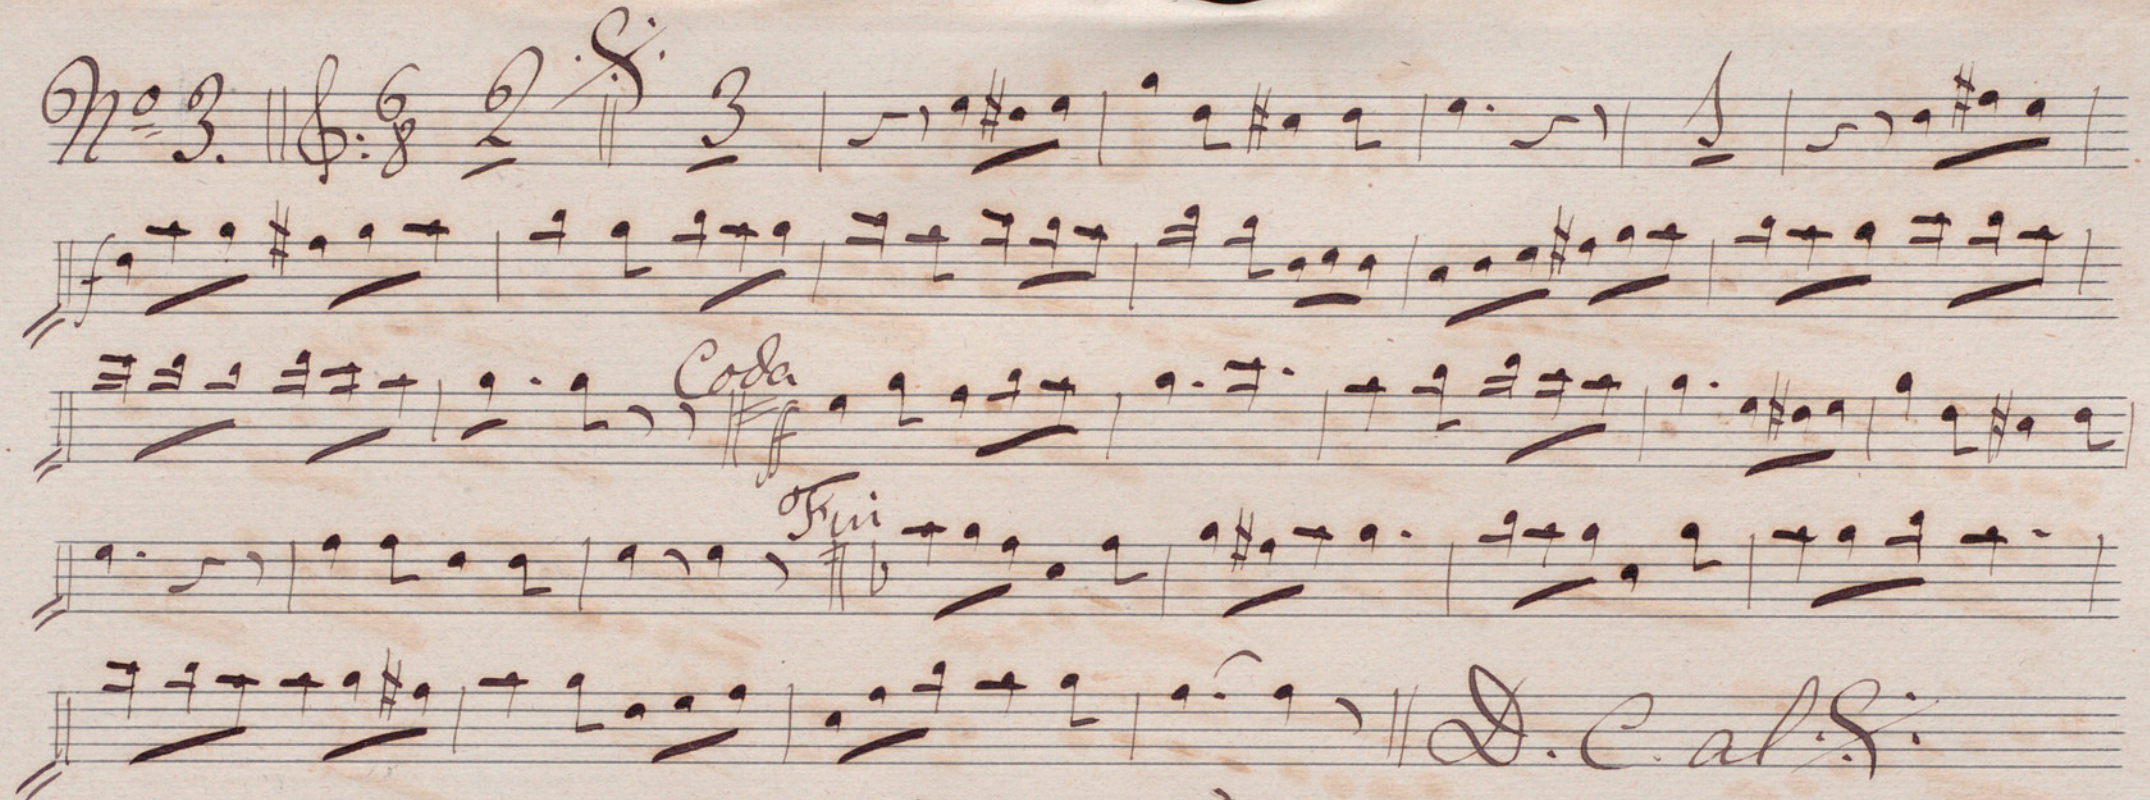 Nº 3. 6/8 2 3 1
f
Coda ff
Fin
D. C. al